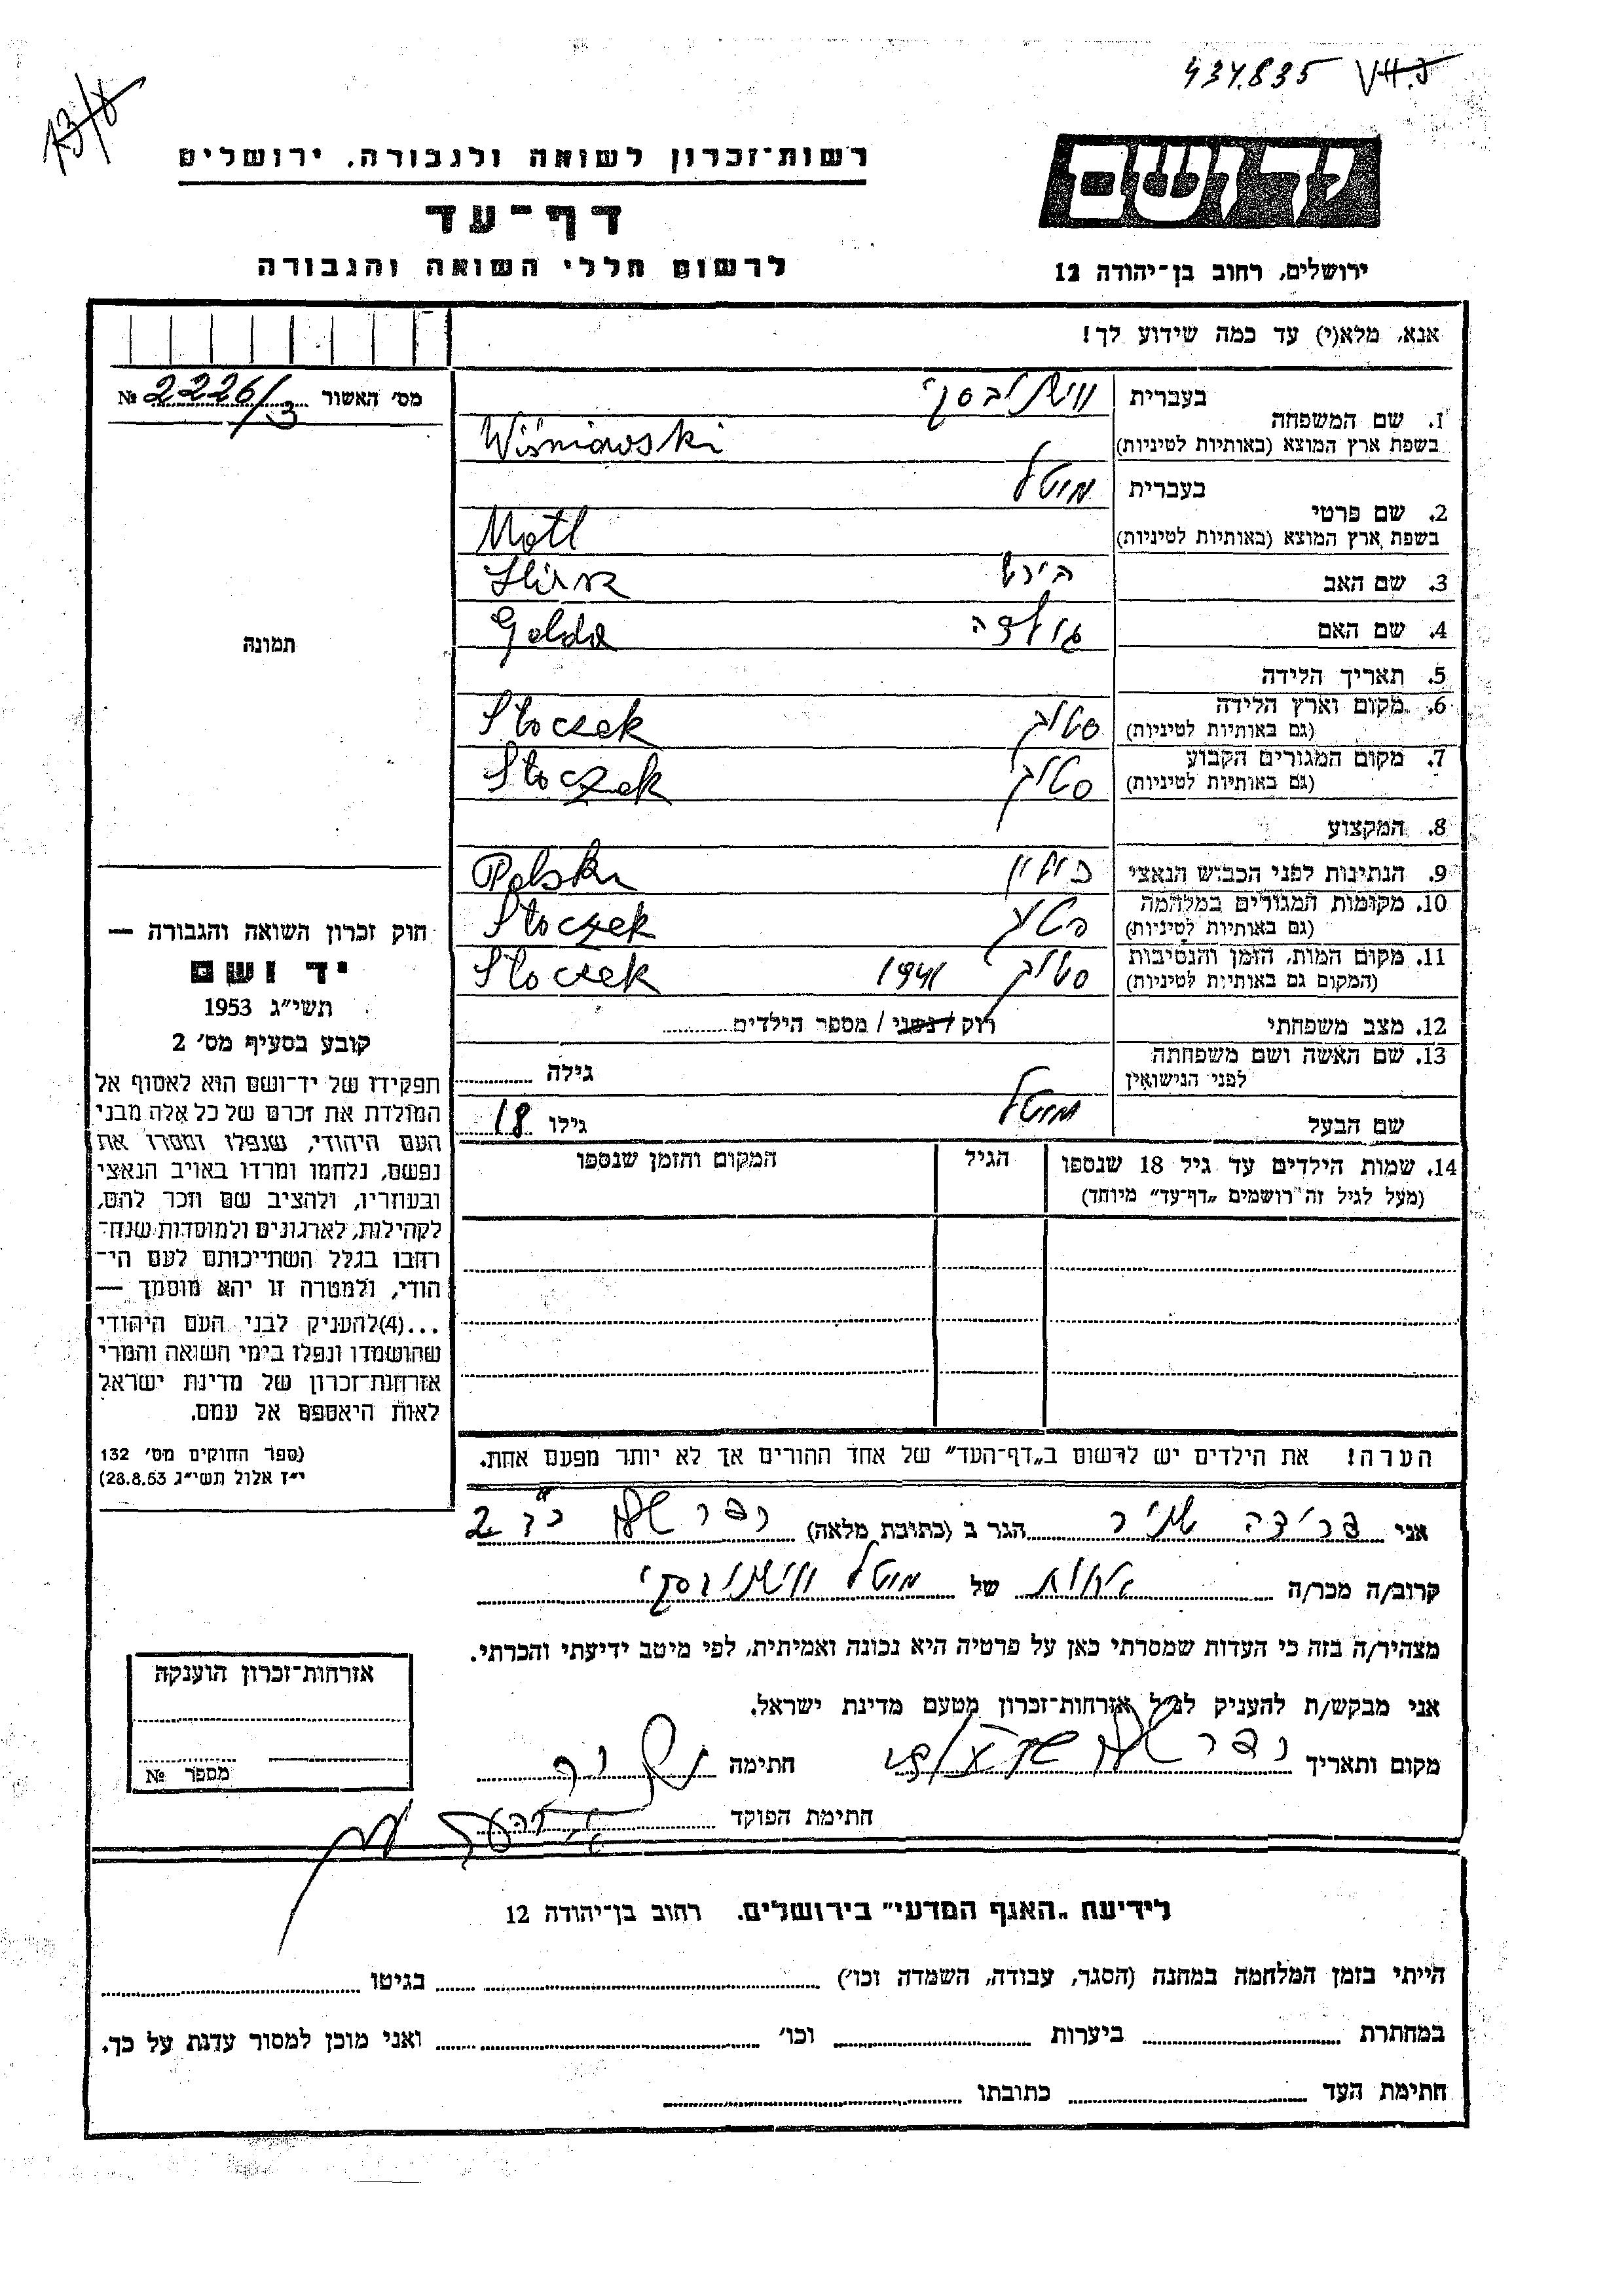 434.835
רשות־זכרון לשואה ולגבורה, ירושלים
יד ושם
דף־עד
לרשום חללי השואה והגבורה
ירושלים, רחוב בן־יהודה 12
אנא, מלא(י) עד כמה שידוע לך!
מס׳ האשור № 2226/3
1. שם המשפחה
בעברית
Wiśniowski
בשפת ארץ המוצא (באותיות לטיניות)
2. שם פרטי
בעברית מוטל
Motl
בשפת ארץ המוצא (באותיות לטיניות)
3. שם האב הירש Hirsz
4. שם האם גולדה Golda
תמונה
5. תאריך הלידה
6. מקום וארץ הלידה Stoczek
(גם באותיות לטיניות)
7. מקום המגורים הקבוע Stoczek
(גם באותיות לטיניות)
8. המקצוע
9. הנתינות לפני הכבוש הנאצי פולין Polska
10. מקומות המגורים במלחמה Stoczek
(גם באותיות לטיניות)
11. מקום המות, הזמן והנסיבות 1941 Stoczek
(המקום גם באותיות לטיניות)
12. מצב משפחתי רוק / נשוי / מספר הילדים
13. שם האשה ושם משפחתה
לפני הנישואין
גילה
שם הבעל מוטל גילו 18
14. שמות הילדים עד גיל 18 שנספו
(מעל לגיל זה רושמים „דף־עד״ מיוחד)
הגיל
המקום והזמן שנספו
הערה! את הילדים יש לרשום ב„דף־העד״ של אחד ההורים אך לא יותר מפעם אחת.
חוק זכרון השואה והגבורה —
יד ושם
תשי״ג 1953
קובע בסעיף מס׳ 2
תפקידו של יד־ושם הוא לאסוף אל
המולדת את זכרם של כל אלה מבני
העם היהודי, שנפלו ומסרו את
נפשם, נלחמו ומרדו באויב הנאצי
ובעוזריו, ולהציב שם וזכר להם,
לקהילות, לארגונים ולמוסדות שנח־
רחבו בגלל השתייכותם לעם הי־
הודי, ולמטרה זו יהא מוסמך —
...(4)להעניק לבני העם היהודי
שהושמדו ונפלו בימי השואה והמרי
אזרחות־זכרון של מדינת ישראל
לאות היאספם אל עמם.
(ספר החוקים מס׳ 132
י״ז אלול תשי״ג 28.8.53)
אני פרידה שניר הגר ב (כתובת מלאה)
קרוב/ה מכר/ה אחות של מוטל
מצהיר/ה בזה כי העדות שמסרתי כאן על פרטיה היא נכונה ואמיתית, לפי מיטב ידיעתי והכרתי.
אני מבקש/ת להעניק לנ״ל אזרחות־זכרון מטעם מדינת ישראל.
מקום ותאריך חתימה
חתימת הפוקד
אזרחות־זכרון הוענקה
מספר №
לידיעת „האגף המדעי״ בירושלים. רחוב בן־יהודה 12
הייתי בזמן המלחמה במחנה (הסגר, עבודה, השמדה וכו׳) בגיטו
במחתרת ביערות וכו׳ ואני מוכן למסור עדות על כך.
חתימת העד כתובתו